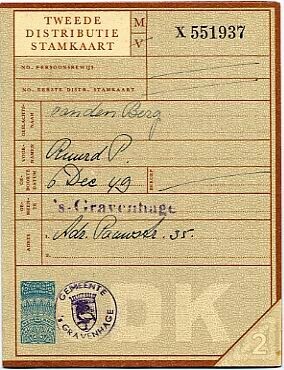 TWEEDE
DISTRIBUTIE
STAMKAART
M
V
X 551937
NO. PERSOONSBEWIJS
NO. EERSTE DISTR. STAMKAART
GESLACHTS-
NAAM
van den Berg
VOOR-
NAMEN
Ruurd P.
GE-
BOORTE
DATUM
6 Dec 49
BEROEP
GE-
MEEN-
TE
's-Gravenhage
ADRES
Adr. Pauwstr. 35.
GEMEENTE
's GRAVENHAGE
DK
2